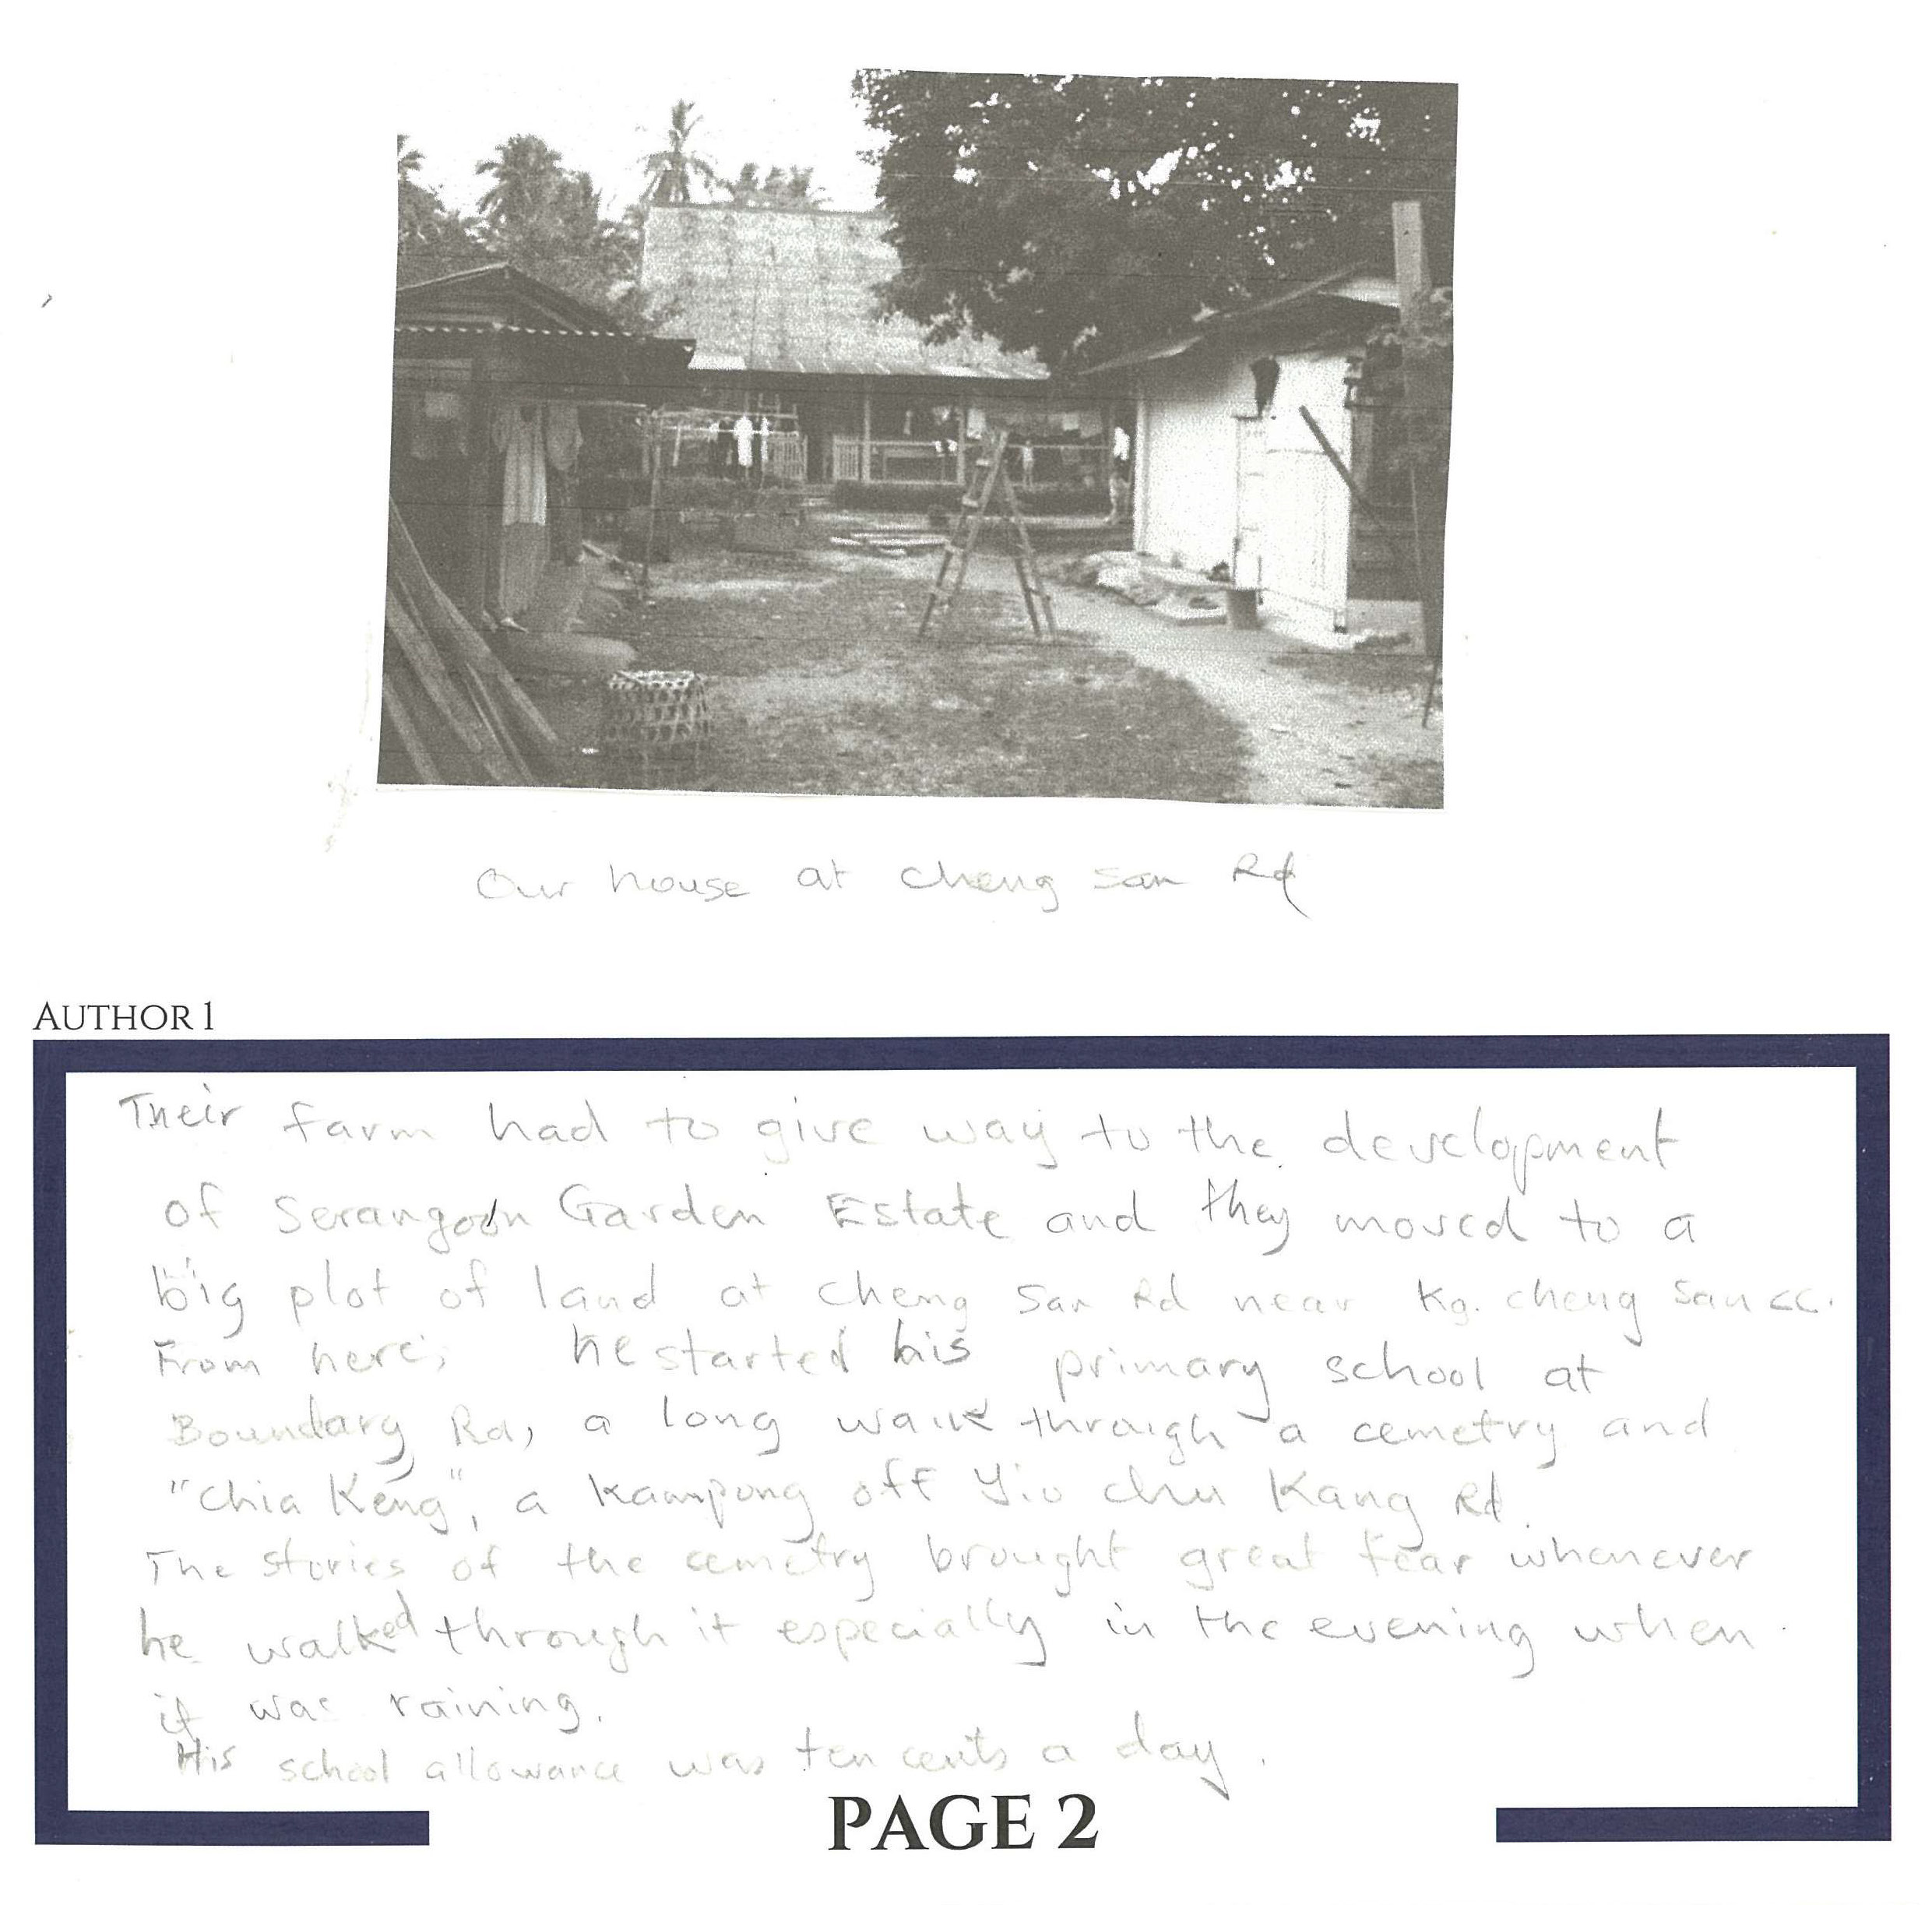 Our house at Cheng San Rd
AUTHOR 1
Their farm had to give way to the development
of Serangoon Garden Estate and they moved to a
big plot of land at Cheng San Rd near Kg. Cheng San CC.
From here, he started his primary school at
Boundary Rd, a long walk through a cemetry and
"Chia Keng", a kampong off Yio Chu Kang Rd.
The stories of the cemetry brought great fear whenever
he walked through it especially in the evening when
it was raining.
His school allowance was ten cents a day.
PAGE 2